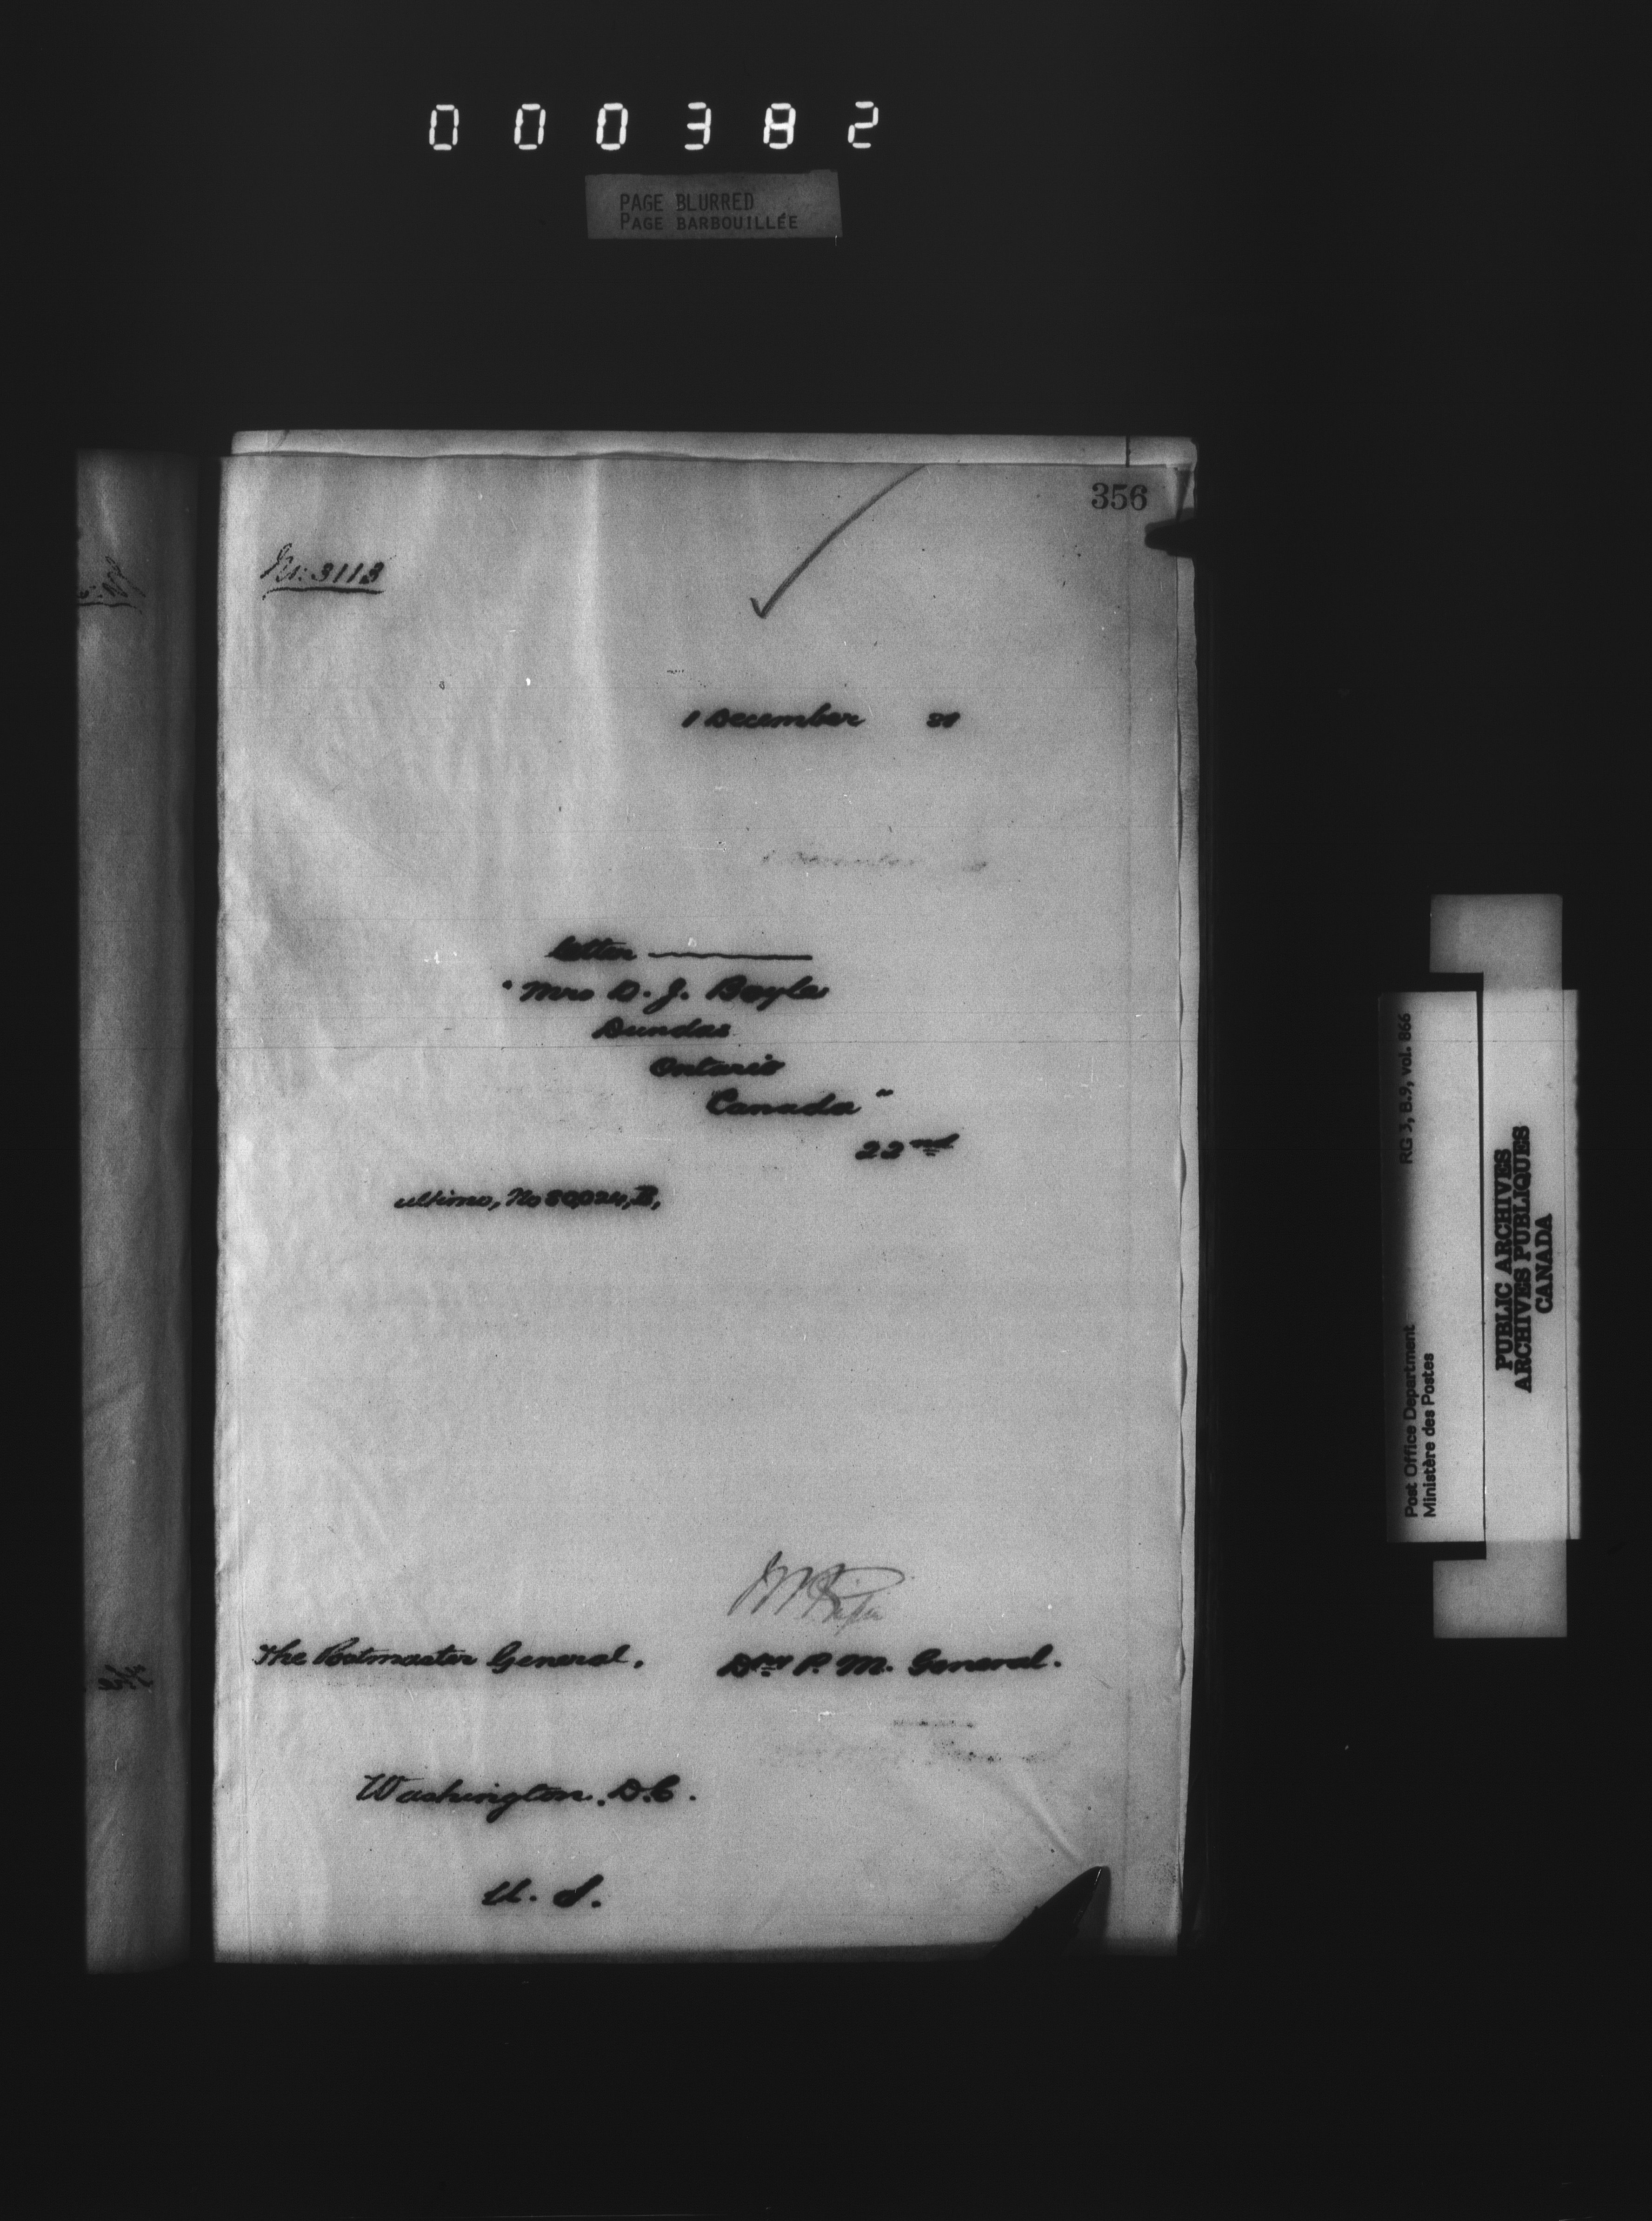 000382
PAGE BLURRED
PAGE BARBOUILLÉE
356
No: 3113
1 December
letter
"Mrs D. J. Boyle
Dundas
Ontario
Canada"
22nd
ultimo, No
The Postmaster General.
Dpy P. M. General.
Washington. D.C.
U. S.
The
RG 3, B.9, vol. 866
Post Office Department
Ministère des Postes
PUBLIC ARCHIVES
ARCHIVES PUBLIQUES
CANADA